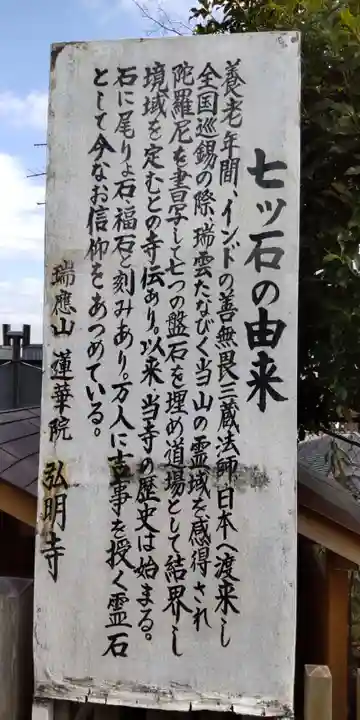 七ッ石の由来
養老年間、インドの善無畏三蔵法師日本へ渡来し
全国巡錫の際、瑞雲たなびく当山の霊域を感得され
陀羅尼を書写して七つの盤石を埋め道場として結界し
境域を定むとの寺伝あり。以来当寺の歴史は始まる。
石に尾りょ石・福石と刻みあり。万人に吉事を授く霊石
として今なお信仰をあつめている。
瑞應山 蓮華院 弘明寺